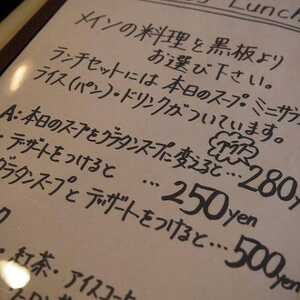 Lunch
メインの料理を黒板より
お選び下さい。
ランチセットには 本日のスープ・ミニサラダ
ライス(パン)・ドリンクがついています。
A:本日のスープをグラタンスープに変えると…280yen
・デザートをつけると …250yen
グラタンスープとデザートをつけると…500yen
・紅茶・アイスコー